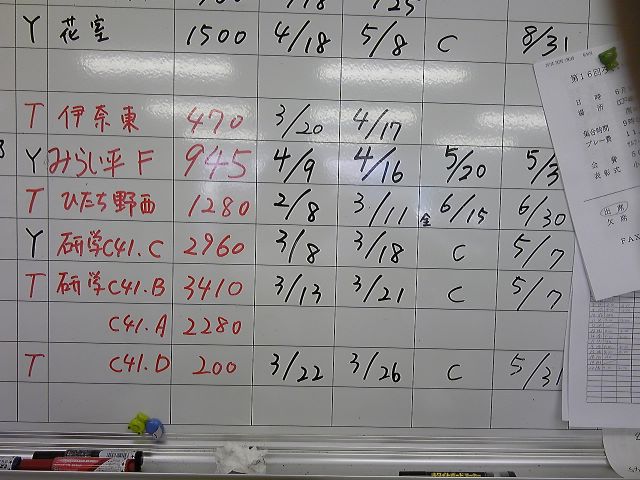 Y 花室 1500 4/18 5/8 C 8/31
T 伊奈東 470 3/20 4/17
Y みらい平F 945 4/9 4/16 5/20 5/3
T ひたち野西 1280 2/8 3/11 6/15 6/30
Y 研学C41.C 2960 3/8 3/18 C 5/7
T 研学C41.B 3410 3/13 3/21 C 5/7
C41.A 2280
T C41.D 200 3/22 3/26 C 5/31
第16回
日時
場所
集合時間
プレー費
会費
表彰式
出席
欠席
FAX